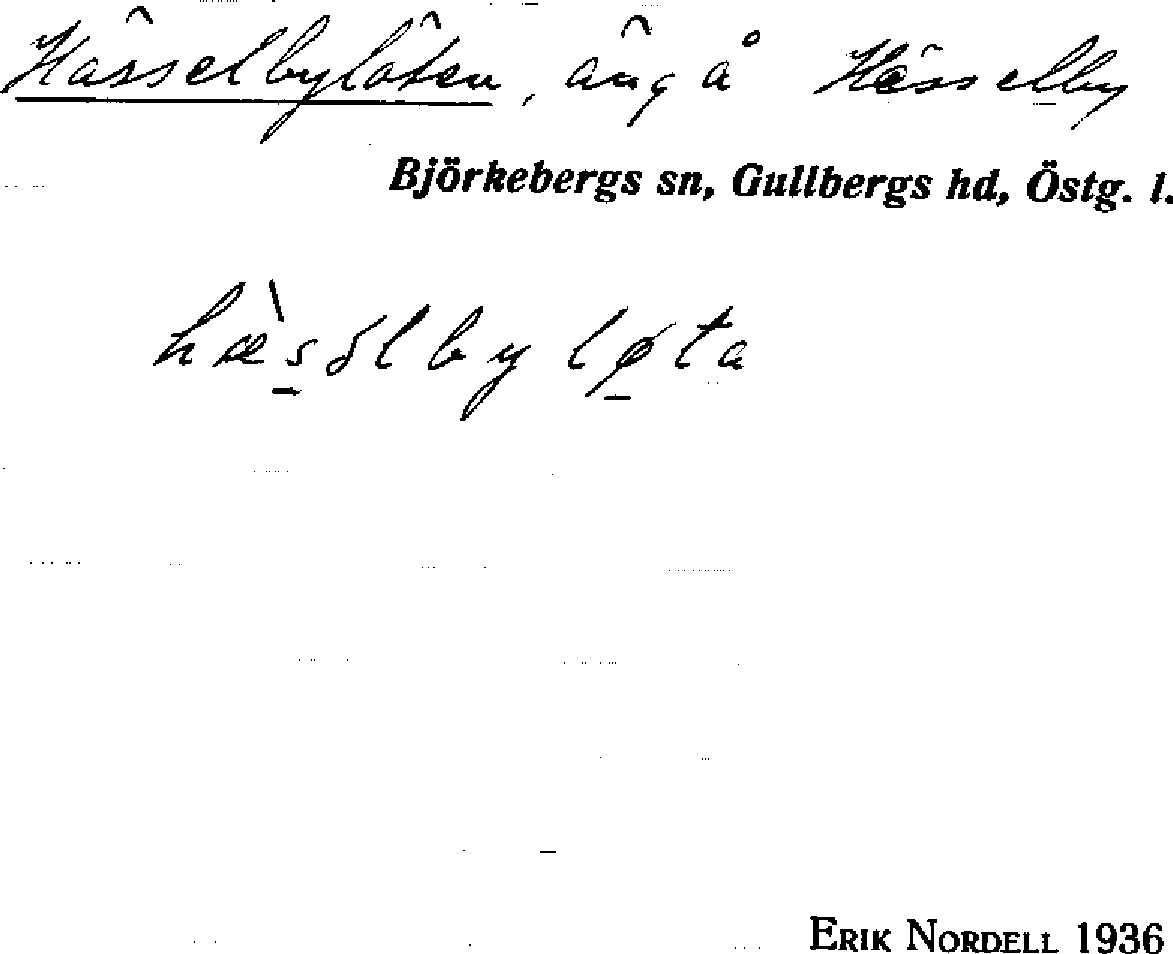 Hässelbylöten, äng å Hässelby
Björkebergs sn, Gullbergs hd, Östg. l.
hæ̀s̠ơlbylø̠ta
ERIK NORDELL 1936